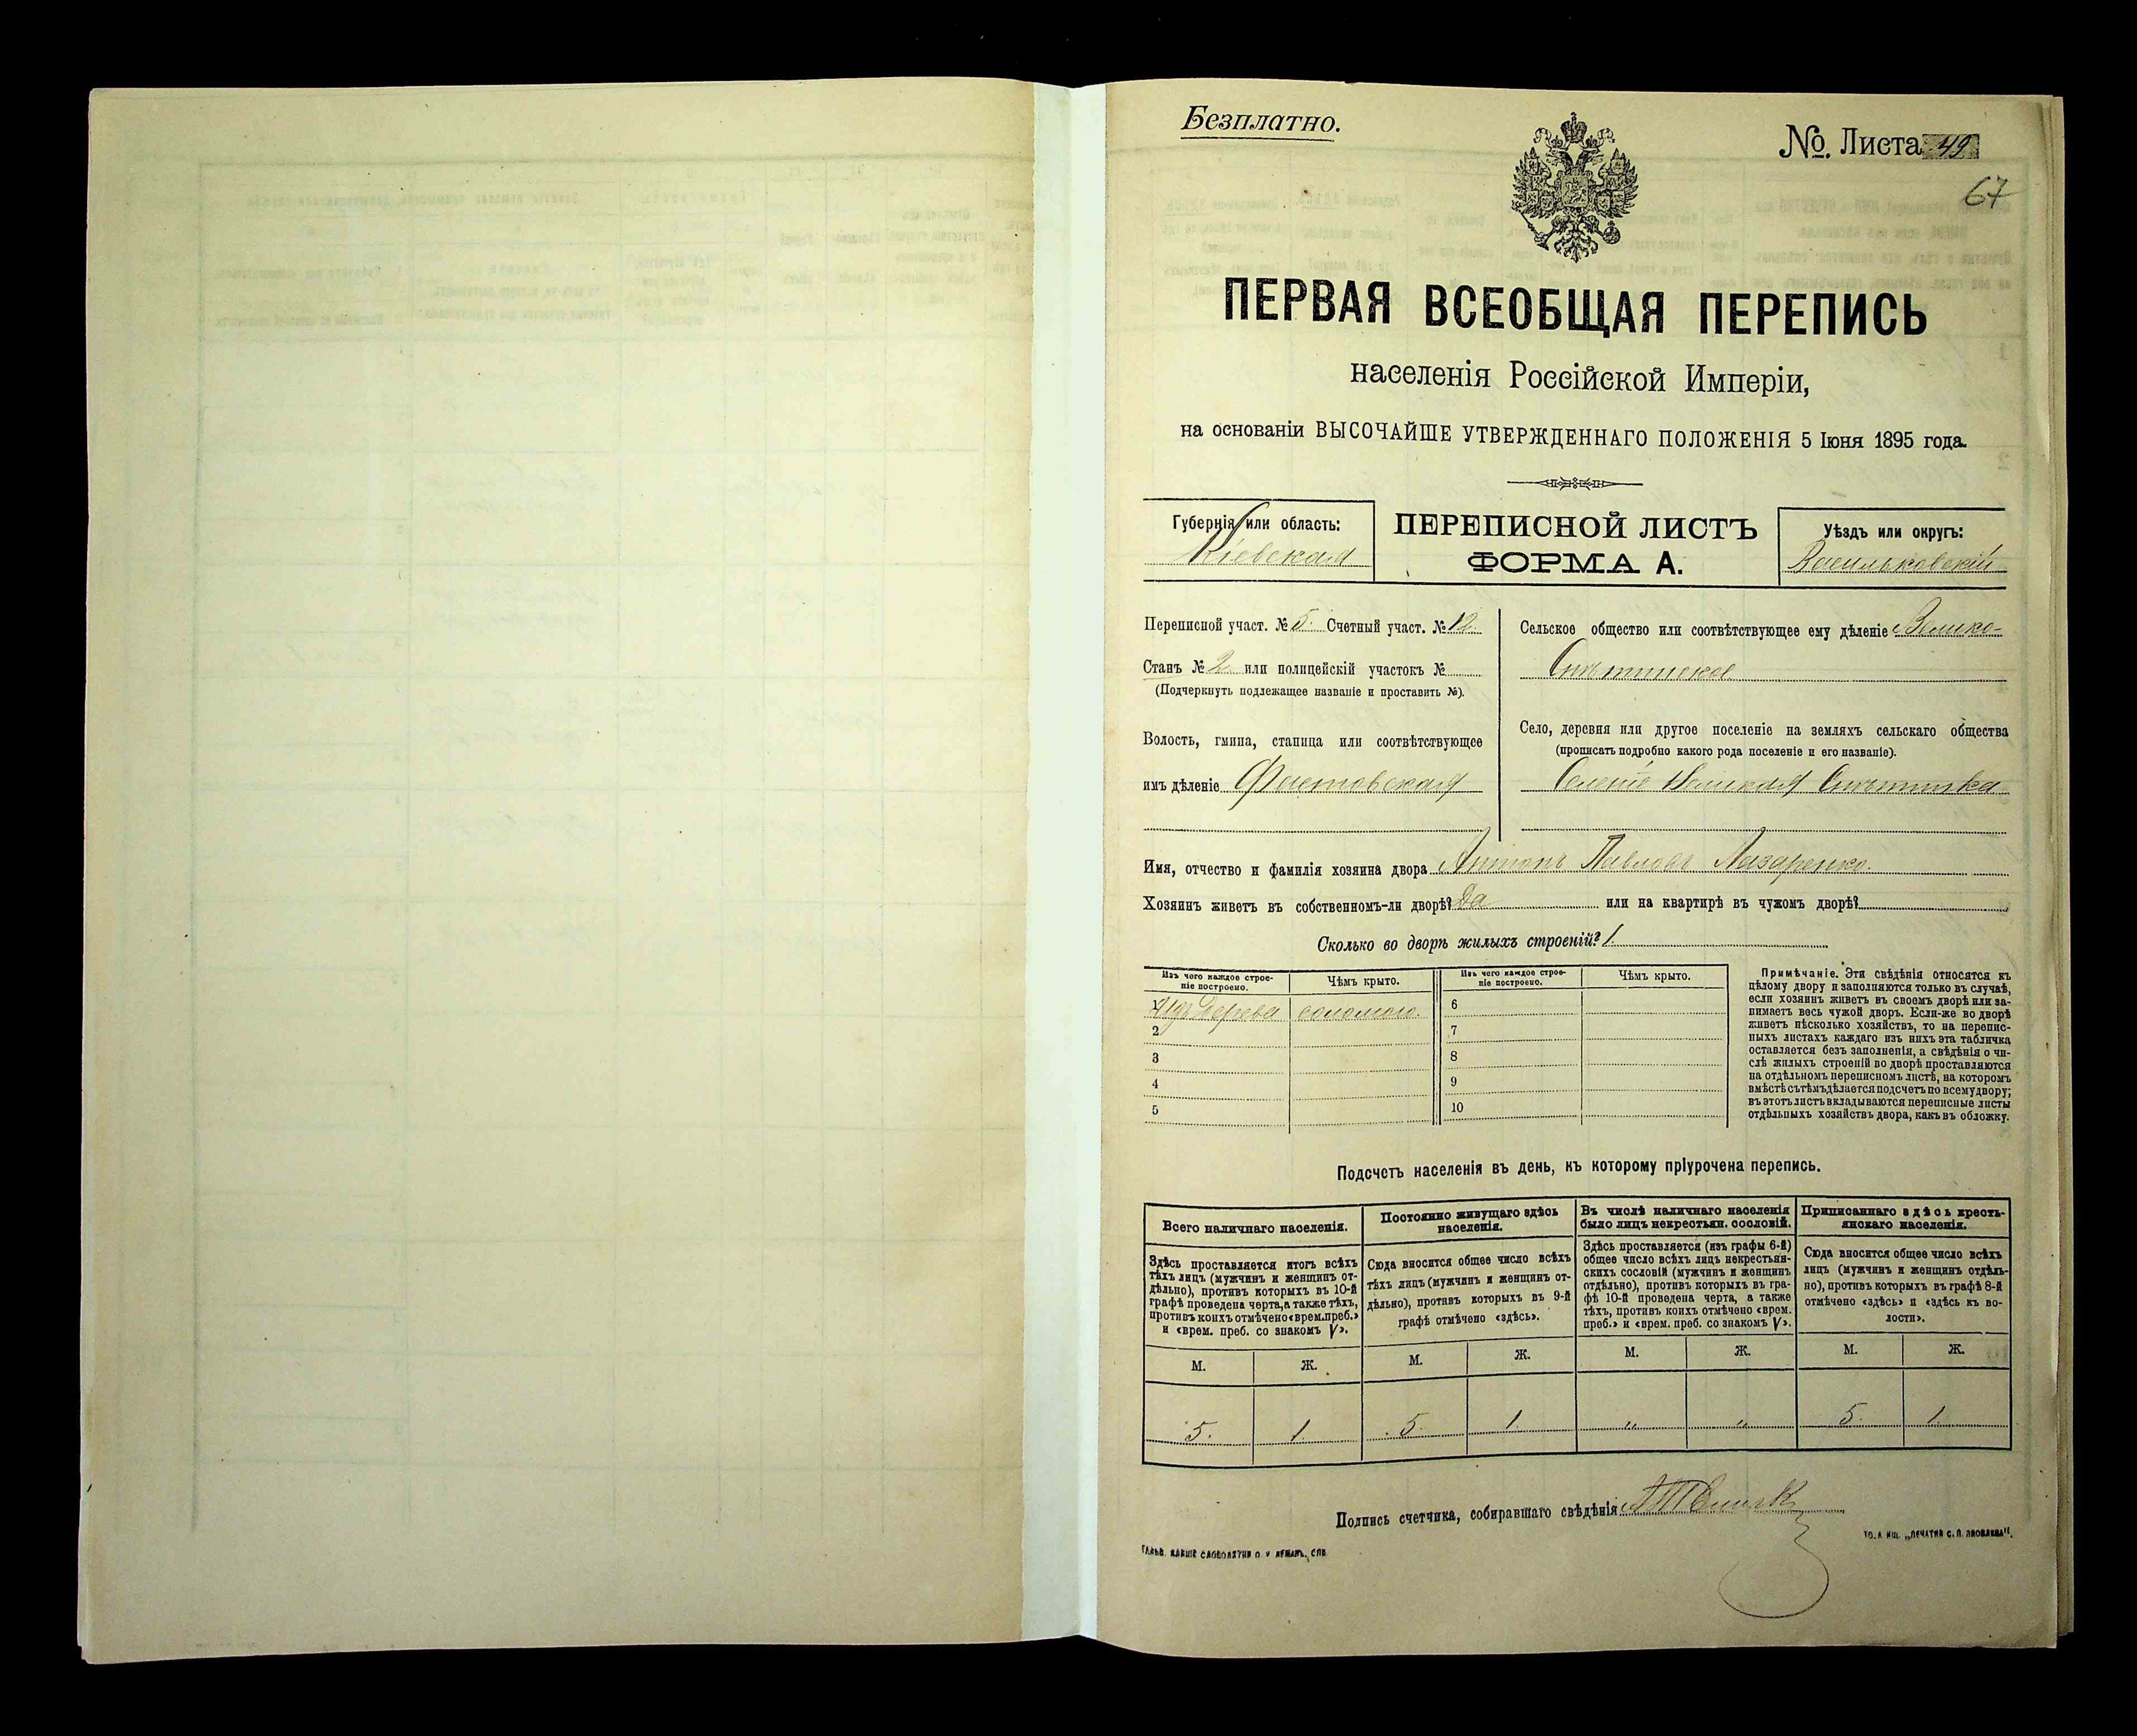 Безплатно.
№. Листа 49
67
ПЕРВАЯ ВСЕОБЩАЯ ПЕРЕПИСЬ
населенія Россійской Имперіи,
на основаніи ВЫСОЧАЙШЕ УТВЕРЖДЕННАГО ПОЛОЖЕНІЯ 5 Іюня 1895 года.
Губернія или область:
Кіевская
ПЕРЕПИСНОЙ ЛИСТЪ
ФОРМА А.
Уѣздъ или округъ:
Васильковскій
Переписной участ. № 5. Счетный участ. № 12.
Станъ № 2 или полицейскій участокъ №
(Подчеркнуть подлежащее названіе и проставить №).
Волость, гмина, станица или соотвѣтствующее
имъ дѣленіе Фастовская
Сельское общество или соотвѣтствующее ему дѣленіе Велико-
Снѣтинское
Село, деревня или другое поселеніе на земляхъ сельскаго общества
(прописать подробно какого рода поселеніе и его названіе).
Селеніе Великая Снѣтинка
Имя, отчество и фамилія хозяина двора Антонъ Павловъ Лазаренко.
Хозяинъ живетъ въ собственномъ-ли дворѣ? Да или на квартирѣ въ чужомъ дворѣ?
Сколько во дворѣ жилыхъ строеній? 1.
Изъ чего каждое строе-
ніе построено.
Чѣмъ крыто.
Изъ чего каждое строе-
ніе построено.
Чѣмъ крыто.
1 Изъ дерева соломою.
2
3
4
5
6
7
8
9
10
Примѣчаніе. Эти свѣдѣнія относятся къ
цѣлому двору и заполняются только въ случаѣ,
если хозяинъ живетъ въ своемъ дворѣ или за-
нимаетъ весь чужой дворъ. Если-же во дворѣ
живетъ нѣсколько хозяйствъ, то на перепис-
ныхъ листахъ каждаго изъ нихъ эта табличка
оставляется безъ заполненія, а свѣдѣнія о чи-
слѣ жилыхъ строеній во дворѣ проставляются
на отдѣльномъ переписномъ листѣ, на которомъ
вмѣстѣ съ тѣмъ дѣлается подсчетъ по всему двору;
въ этотъ листъ вкладываются переписные листы
отдѣльныхъ хозяйствъ двора, какъ въ обложку.
Подсчетъ населенія въ день, къ которому пріурочена перепись.
Всего наличнаго населенія.
Здѣсь проставляется итогъ всѣхъ
тѣхъ лицъ (мужчинъ и женщинъ от-
дѣльно), противъ которыхъ въ 10-й
графѣ проведена черта, а также тѣхъ,
противъ коихъ отмѣчено «врем. преб.»
и «врем. преб. со знакомъ V».
Постоянно живущаго здѣсь
населенія.
Сюда вносится общее число всѣхъ
тѣхъ лицъ (мужчинъ и женщинъ от-
дѣльно), противъ которыхъ въ 9-й
графѣ отмѣчено «здѣсь».
Въ числѣ наличнаго населенія
было лицъ некрестьян. сословій.
Здѣсь проставляется (изъ графы 6-й)
общее число всѣхъ лицъ некрестьян-
скихъ сословій (мужчинъ и женщинъ
отдѣльно), противъ которыхъ въ гра-
фѣ 10-й проведена черта, а также
тѣхъ, противъ коихъ отмѣчено «врем.
преб.» и «врем. преб. со знакомъ V».
Приписаннаго здѣсь кресть-
янскаго населенія.
Сюда вносится общее число всѣхъ
лицъ (мужчинъ и женщинъ отдѣль-
но), противъ которыхъ въ графѣ 8-й
отмѣчено «здѣсь» и «здѣсь къ во-
лости».
М. Ж. М. Ж. М. Ж. М. Ж.
5. 1 5. 1. " " 5. 1.
Подпись счетчика, собиравшаго свѣдѣнія